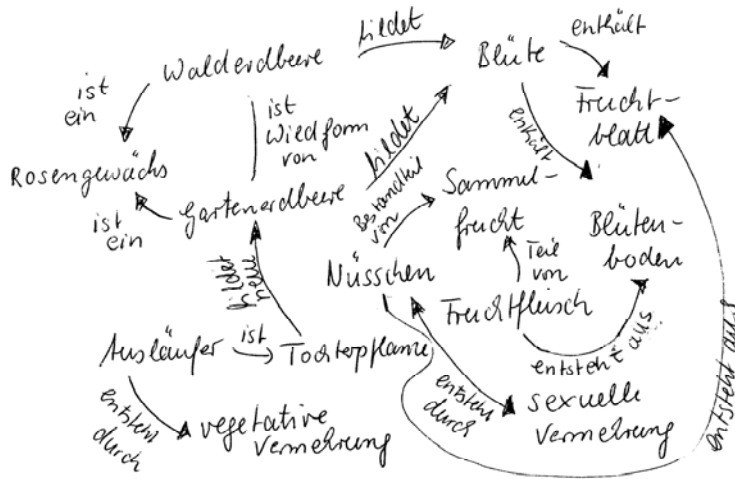 bildet
enthält
Walderdbeere
Blüte
ist
ein
Frucht-
blatt
ist
Wildform
von
bildet
enthält
Rosengewächs
Gartenerdbeere
Bestandteil
von
Sammel-
frucht
Blüten-
boden
ist
ein
bildet
neu
Nüsschen
Teil
von
Fruchtfleisch
Ausläufer
ist
Tochterpflanze
entsteht aus
entsteht
durch
vegetative
Vermehrung
entsteht
durch
sexuelle
Vermehrung
entsteht aus